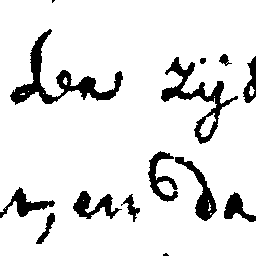 den zijd
r, en da